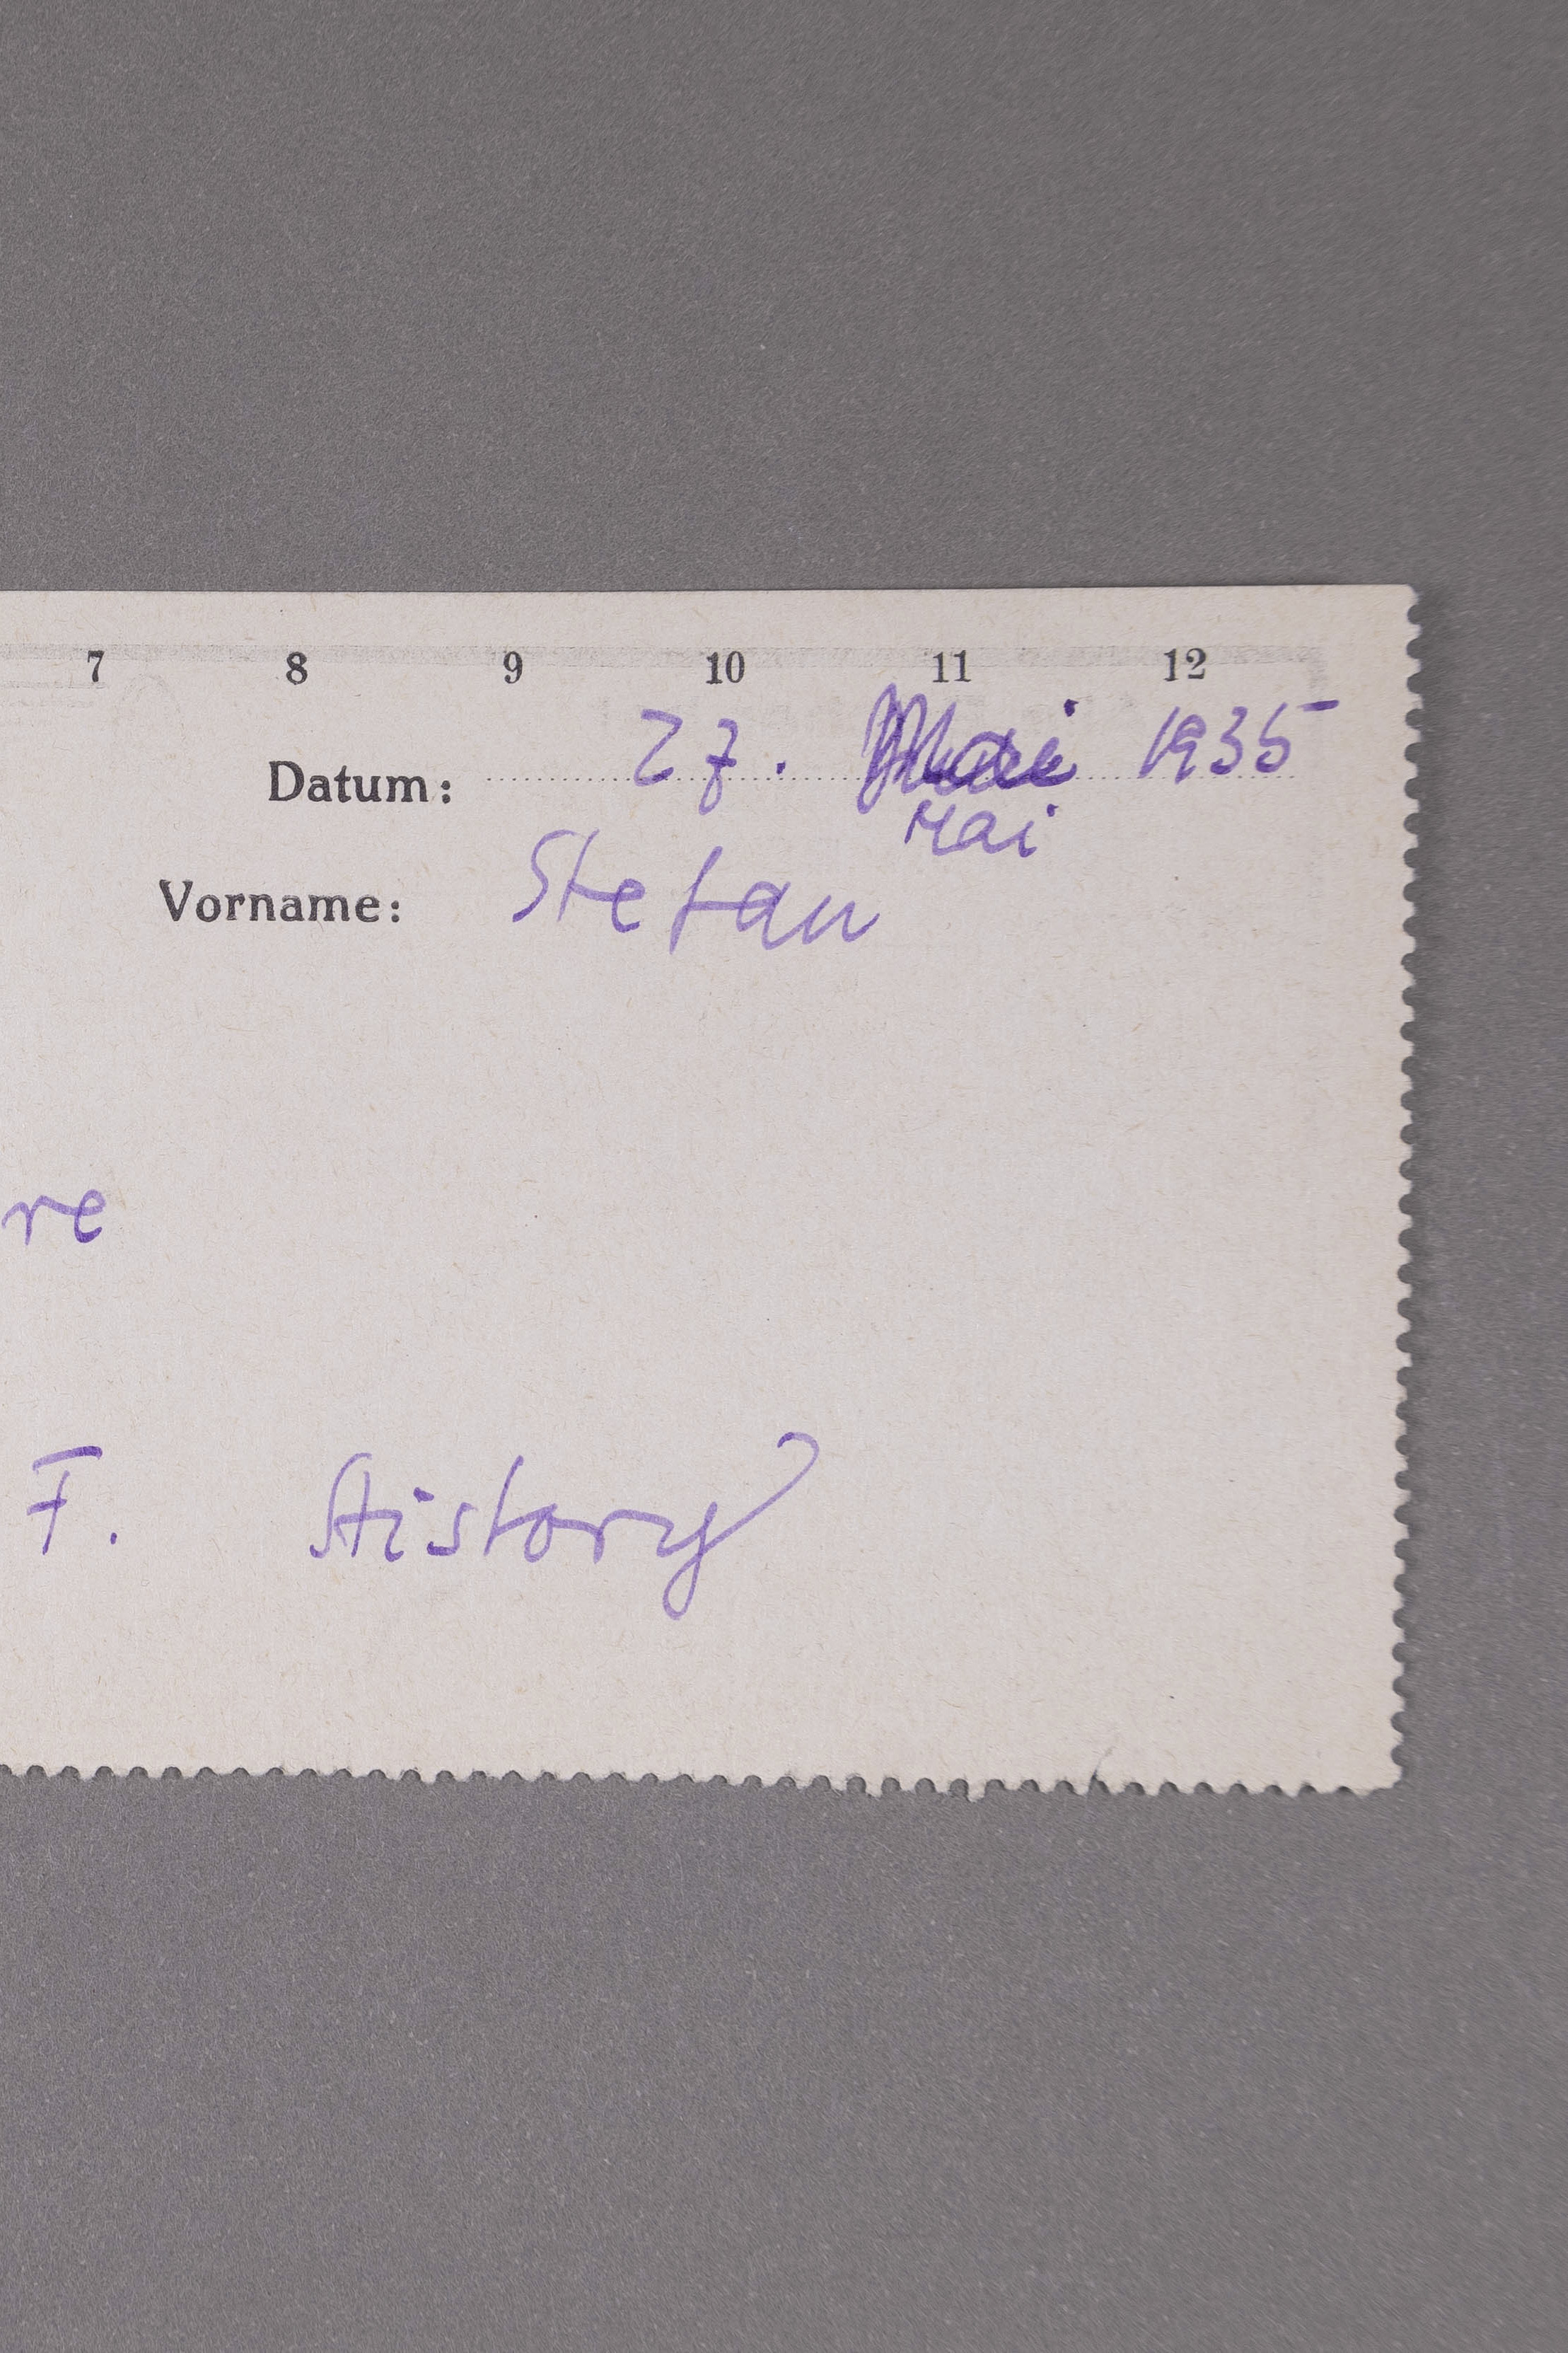 7 8 9 10 11 12
Datum: 27. Mai 1935
Mai
Vorname: Stefan
re
F. History